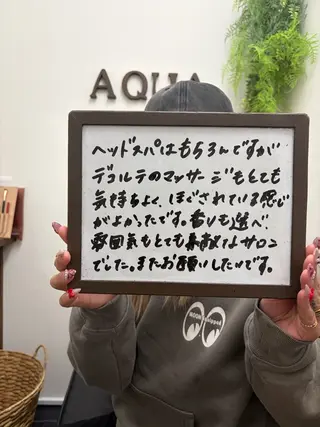 AQUA
ヘッドスパはもちろんですが
デコルテのマッサージもとても
気持ちよく、ほぐされている感じ
がよかったです。香りも選べ、
雰囲気もとても素敵なサロン
でした。またお願いしたいです。
MOON